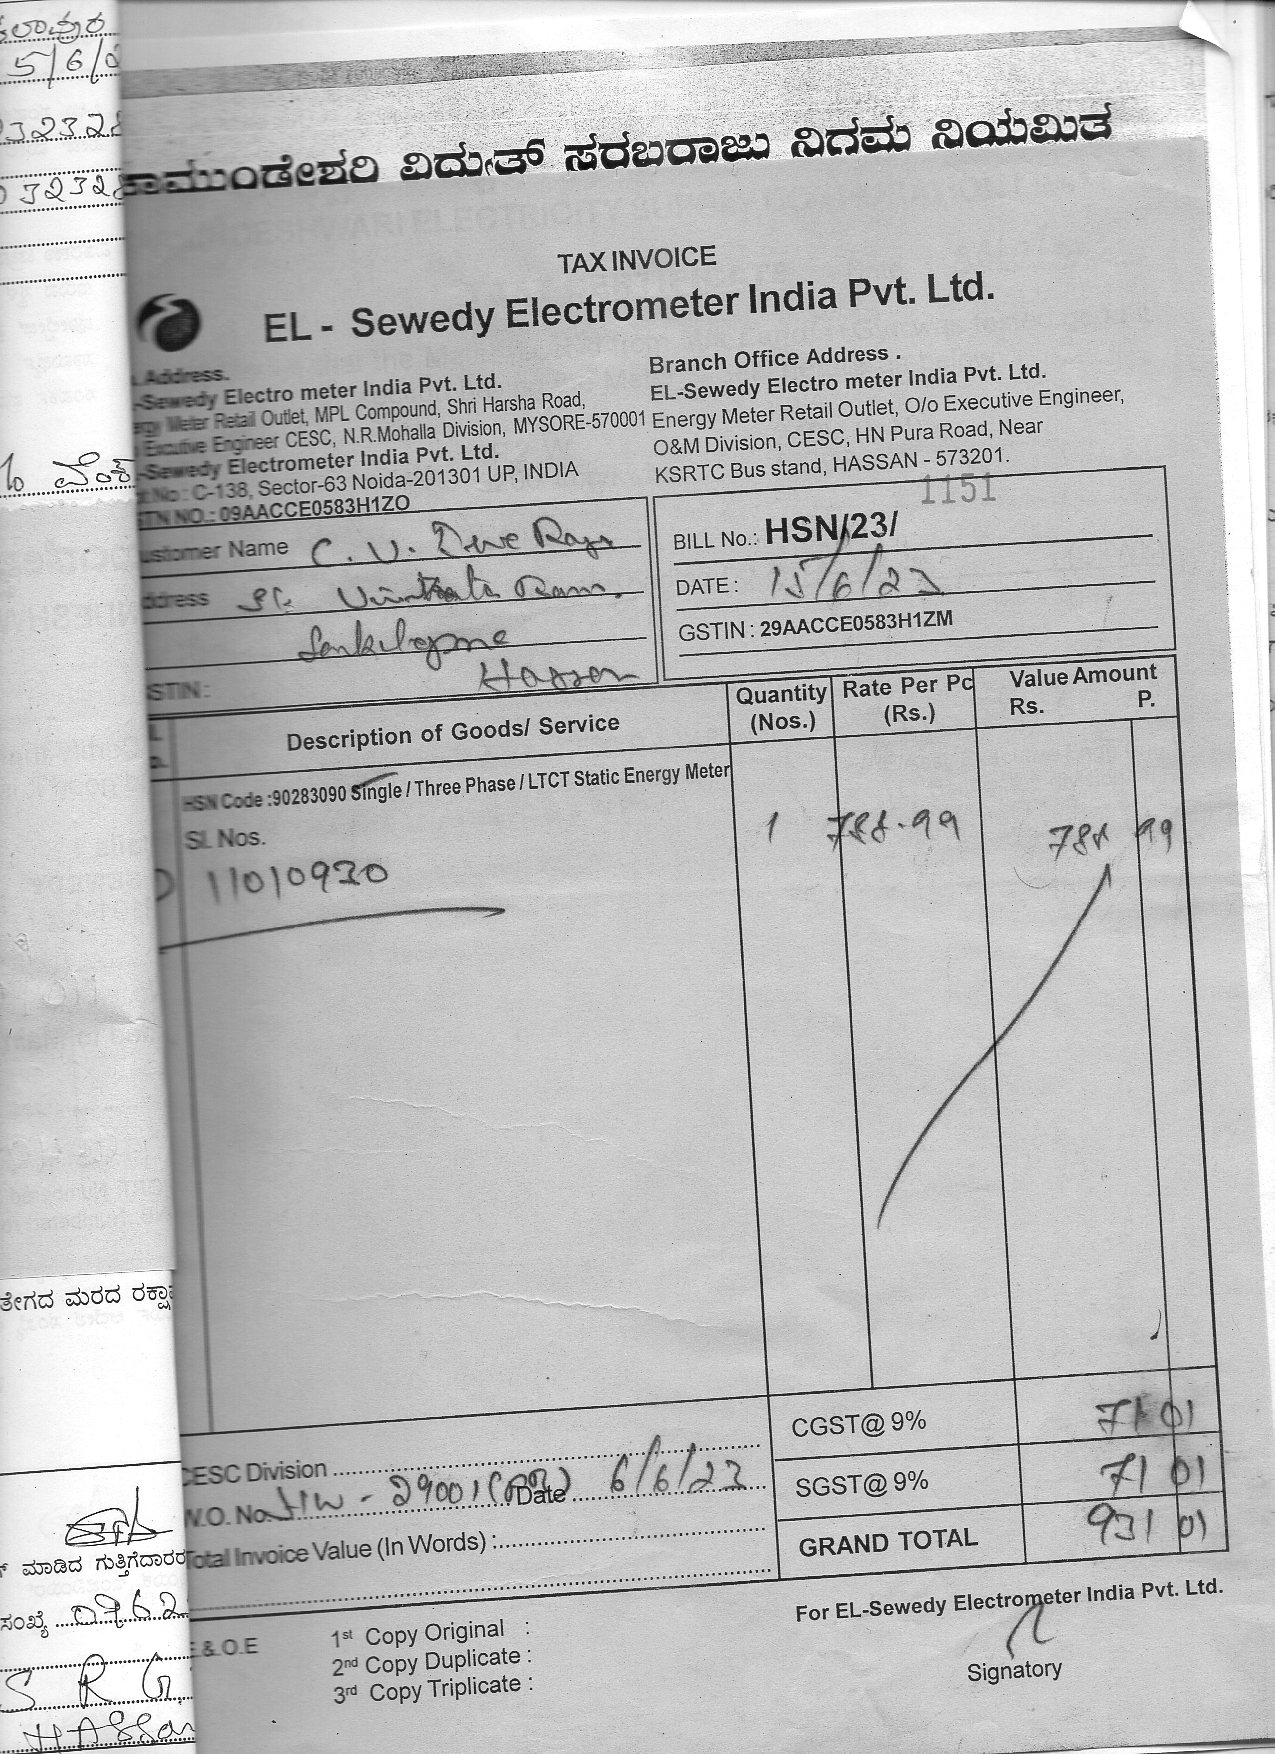 5/6/
232328
032328
ಚಾಮುಂಡೇಶ್ವರಿ ವಿದ್ಯುತ್ ಸರಬರಾಜು ನಿಗಮ ನಿಯಮಿತ
TAX INVOICE
EL - Sewedy Electrometer India Pvt. Ltd.
Address.
-Sewedy Electro meter India Pvt. Ltd.
Meter Retail Outlet, MPL Compound, Shri Harsha Road,
Excutive Engineer CESC, N.R.Mohalla Division, MYSORE-570001
-Sewedy Electrometer India Pvt. Ltd.
C-138, Sector-63 Noida-201301 UP, INDIA
NO.: 09AACCE0583H1ZO
Branch Office Address .
EL-Sewedy Electro meter India Pvt. Ltd.
Energy Meter Retail Outlet, O/o Executive Engineer,
O&M Division, CESC, HN Pura Road, Near
KSRTC Bus stand, HASSAN - 573201.
ustomer Name C. V.
ddress
Hassan
STIN :
1151
BILL No.: HSN/23/
DATE : 15/6/23
GSTIN : 29AACCE0583H1ZM
Description of Goods/ Service Quantity (Nos.) Rate Per Pc (Rs.) Value Amount Rs. P.
HSN Code :90283090 Single / Three Phase / LTCT Static Energy Meter
Sl. Nos. 1 788.99 788 99
11010930
CGST@ 9% 71 01
SGST@ 9% 71 01
GRAND TOTAL 931 01
CESC Division
W.O. No. Date 6/6/23
Total Invoice Value (In Words) :
E & O.E
1st Copy Original :
2nd Copy Duplicate :
3rd Copy Triplicate :
For EL-Sewedy Electrometer India Pvt. Ltd.
Signatory
ತೇಗದ ಮರದ
ಮಾಡಿದ ಗುತ್ತಿಗೆದಾರರ
ಸಂಖ್ಯೆ
S R G
HASSan